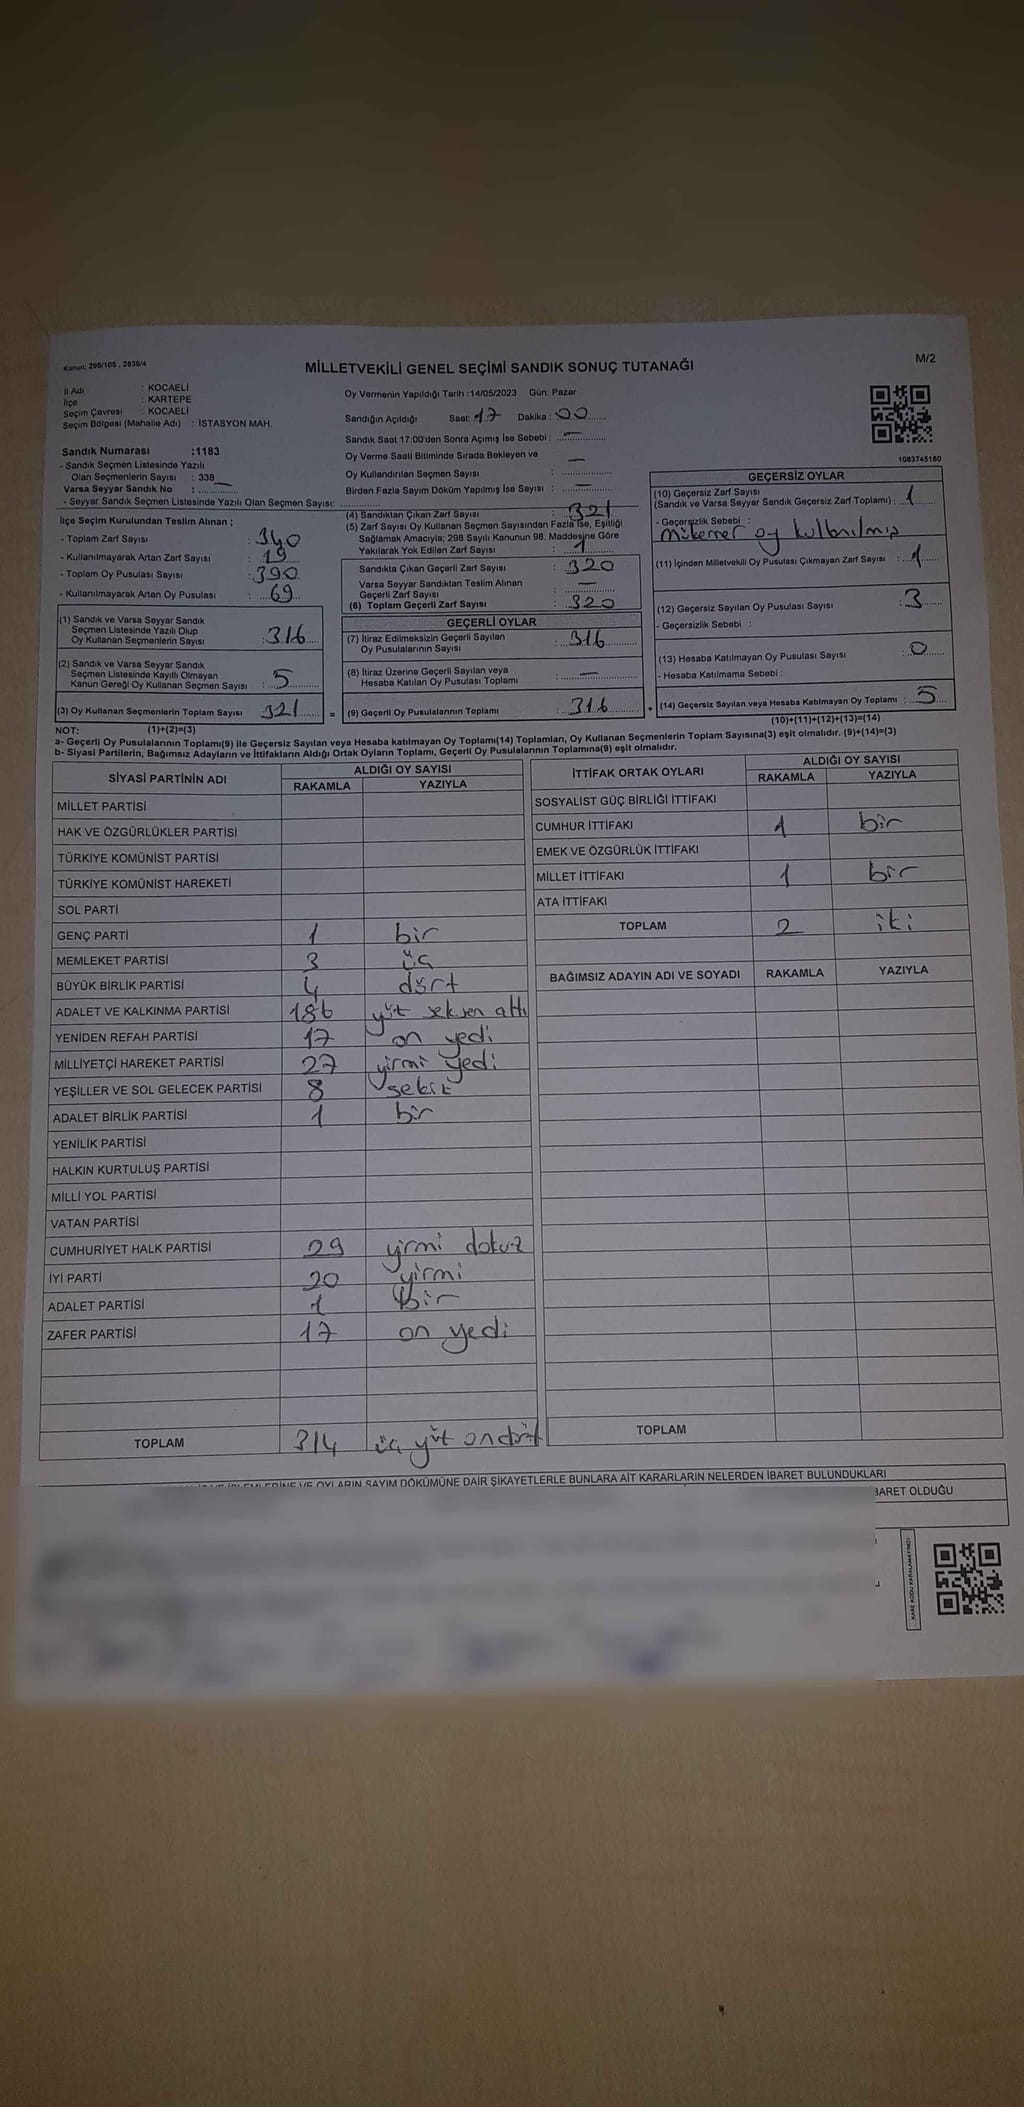 Kanun: 298/105 . 2839/4
MİLLETVEKİLİ GENEL SEÇİMİ SANDIK SONUÇ TUTANAĞI
M/2
İl Adı : KOCAELİ
İlçe : KARTEPE
Seçim Çevresi : KOCAELİ
Seçim Bölgesi (Mahalle Adı) : İSTASYON MAH.
Sandık Numarası :1183
- Sandık Seçmen Listesinde Yazılı
Olan Seçmenlerin Sayısı : 338
Varsa Seyyar Sandık No : —
- Seyyar Sandık Seçmen Listesinde Yazılı Olan Seçmen Sayısı:
İlçe Seçim Kurulundan Teslim Alınan ;
- Toplam Zarf Sayısı : 340
- Kullanılmayarak Artan Zarf Sayısı : 19
- Toplam Oy Pusulası Sayısı : 390
- Kullanılmayarak Artan Oy Pusulası : 69
(1) Sandık ve Varsa Seyyar Sandık
Seçmen Listesinde Yazılı Olup
Oy Kullanan Seçmenlerin Sayısı : 316
(2) Sandık ve Varsa Seyyar Sandık
Seçmen Listesinde Kayıtlı Olmayan
Kanun Gereği Oy Kullanan Seçmen Sayısı : 5
(3) Oy Kullanan Seçmenlerin Toplam Sayısı 321 =
Oy Vermenin Yapıldığı Tarih :14/05/2023 Gün: Pazar
Sandığın Açıldığı Saat: 17 Dakika : 00
Sandık Saat 17:00'den Sonra Açımış İse Sebebi : —
Oy Verme Saati Bitiminde Sırada Bekleyen ve
Oy Kullandırılan Seçmen Sayısı : —
Birden Fazla Sayım Döküm Yapılmış İse Sayısı : —
(4) Sandıktan Çıkan Zarf Sayısı : 321
(5) Zarf Sayısı Oy Kullanan Seçmen Sayısından Fazla İse, Eşitliği
Sağlamak Amacıyla; 298 Sayılı Kanunun 98. Maddesine Göre
Yakılarak Yok Edilen Zarf Sayısı : 1
Sandıkta Çıkan Geçerli Zarf Sayısı : 320
Varsa Seyyar Sandıktan Teslim Alınan
Geçerli Zarf Sayısı : —
(6) Toplam Geçerli Zarf Sayısı : 320
GEÇERLİ OYLAR
(7) İtiraz Edilmeksizin Geçerli Sayılan
Oy Pusulalarının Sayısı : 316
(8) İtiraz Üzerine Geçerli Sayılan veya
Hesaba Katılan Oy Pusulası Toplamı : —
(9) Geçerli Oy Pusulalarının Toplamı : 316 +
1083745180
GEÇERSİZ OYLAR
(10) Geçersiz Zarf Sayısı
(Sandık ve Varsa Seyyar Sandık Geçersiz Zarf Toplamı) : 1
- Geçersizlik Sebebi :
mükerrer oy kullanılmış
(11) İçinden Milletvekili Oy Pusulası Çıkmayan Zarf Sayısı : 1
(12) Geçersiz Sayılan Oy Pusulası Sayısı : 3
- Geçersizlik Sebebi :
(13) Hesaba Katılmayan Oy Pusulası Sayısı : 0
- Hesaba Katılmama Sebebi :
(14) Geçersiz Sayılan veya Hesaba Katılmayan Oy Toplamı : 5
NOT: (1)+(2)=(3) (10)+(11)+(12)+(13)=(14)
a- Geçerli Oy Pusulalarının Toplamı(9) ile Geçersiz Sayılan veya Hesaba katılmayan Oy Toplamı(14) Toplamları, Oy Kullanan Seçmenlerin Toplam Sayısına(3) eşit olmalıdır. (9)+(14)=(3)
b- Siyasi Partilerin, Bağımsız Adayların ve İttifakların Aldığı Ortak Oyların Toplamı, Geçerli Oy Pusulalarının Toplamına(9) eşit olmalıdır.
SİYASİ PARTİNİN ADI ALDIĞI OY SAYISI
RAKAMLA YAZIYLA
MİLLET PARTİSİ
HAK VE ÖZGÜRLÜKLER PARTİSİ
TÜRKİYE KOMÜNİST PARTİSİ
TÜRKİYE KOMÜNİST HAREKETİ
SOL PARTİ
GENÇ PARTİ 1 bir
MEMLEKET PARTİSİ 3 üç
BÜYÜK BİRLİK PARTİSİ 4 dört
ADALET VE KALKINMA PARTİSİ 186 yüz seksen altı
YENİDEN REFAH PARTİSİ 17 on yedi
MİLLİYETÇİ HAREKET PARTİSİ 27 yirmi yedi
YEŞİLLER VE SOL GELECEK PARTİSİ 8 sekiz
ADALET BİRLİK PARTİSİ 1 bir
YENİLİK PARTİSİ
HALKIN KURTULUŞ PARTİSİ
MİLLİ YOL PARTİSİ
VATAN PARTİSİ
CUMHURİYET HALK PARTİSİ 29 yirmi dokuz
İYİ PARTİ 20 yirmi
ADALET PARTİSİ 1 bir
ZAFER PARTİSİ 17 on yedi
TOPLAM 314 üç yüz ondört
İTTİFAK ORTAK OYLARI ALDIĞI OY SAYISI
RAKAMLA YAZIYLA
SOSYALİST GÜÇ BİRLİĞİ İTTİFAKI
CUMHUR İTTİFAKI 1 bir
EMEK VE ÖZGÜRLÜK İTTİFAKI
MİLLET İTTİFAKI 1 bir
ATA İTTİFAKI
TOPLAM 2 iki
BAĞIMSIZ ADAYIN ADI VE SOYADI RAKAMLA YAZIYLA
TOPLAM
VE OYLARIN SAYIM DÖKÜMÜNE DAİR ŞİKAYETLERLE BUNLARA AİT KARARLARIN NELERDEN İBARET BULUNDUKLARI
BARET OLDUĞU
KARE KODU KARALAMAYINIZ!